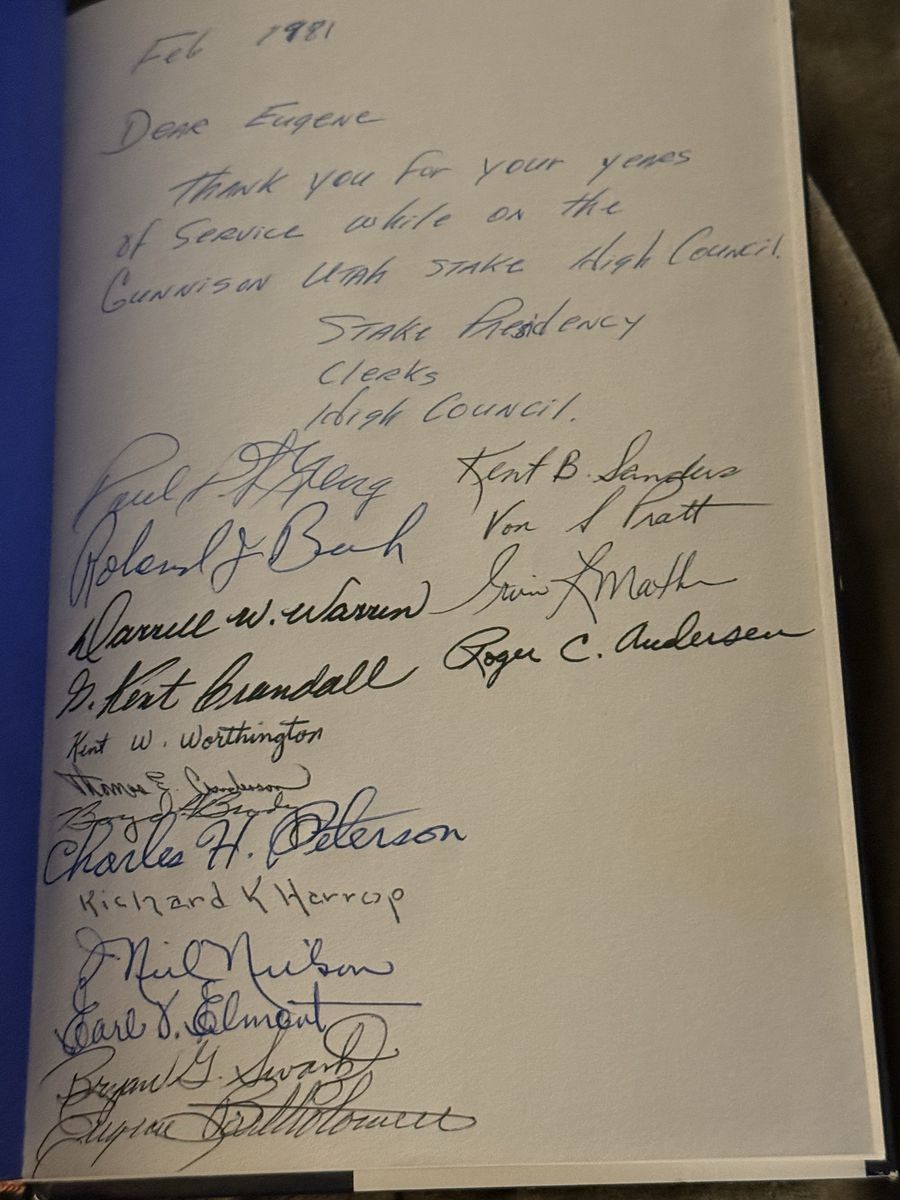 Feb 1981
Dear Eugene
Thank you for your years
of Service while on the
Gunnison Utah Stake High Council.
Stake Presidency
Clerks
High Council.
Paul
Roland J
Darrell W. Warren
G. Kent Crandall
Kent W. Worthington
Thomas E. Anderson
Boyd Brady
Charles H. Peterson
Richard K Harrop
J Neil Neilson
Earl V. Elmont
Bryan G. Swank
Eugene Bartholomew
Kent B. Sanders
Von S Pratt
Irvin L
Roger C. Andersen